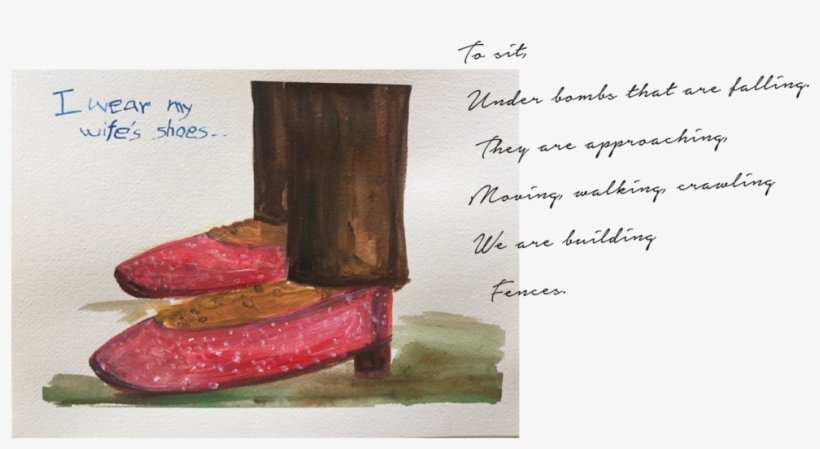 I wear my
wife's shoes..
To sit,
Under bombs that are falling.
They are approaching,
Moving, walking, crawling
We are building
Fences.